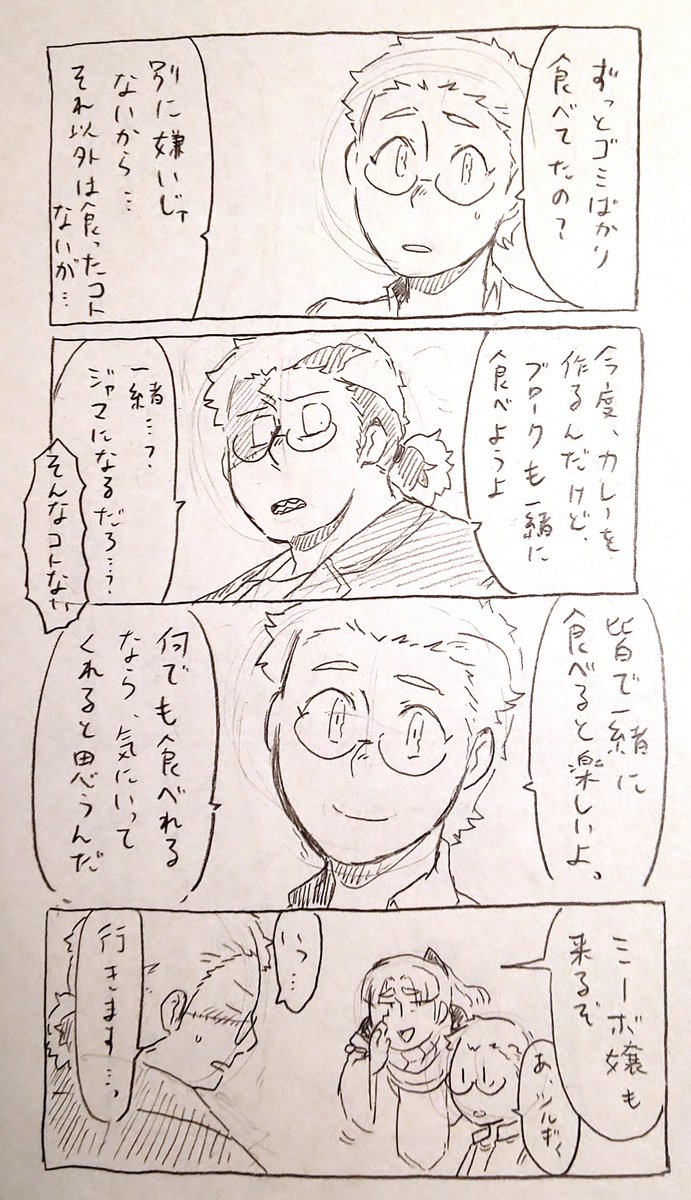 ずっとゴミばかり
食べてたの?
別に嫌いじゃ
ないから…
それ以外は食ったコト
ないが…
今度、カレーを
作るんだけど、
ブロークも一緒に
食べようよ
一緒…?
ジャマになるだろ…?
そんなコトない
皆で一緒に
食べると楽しいよ。
何でも食べれる
なら、気にいって
くれると思うんだ
ミーボ嬢も
来るぞ
あ、シルボく
いっ…
行きます…っ